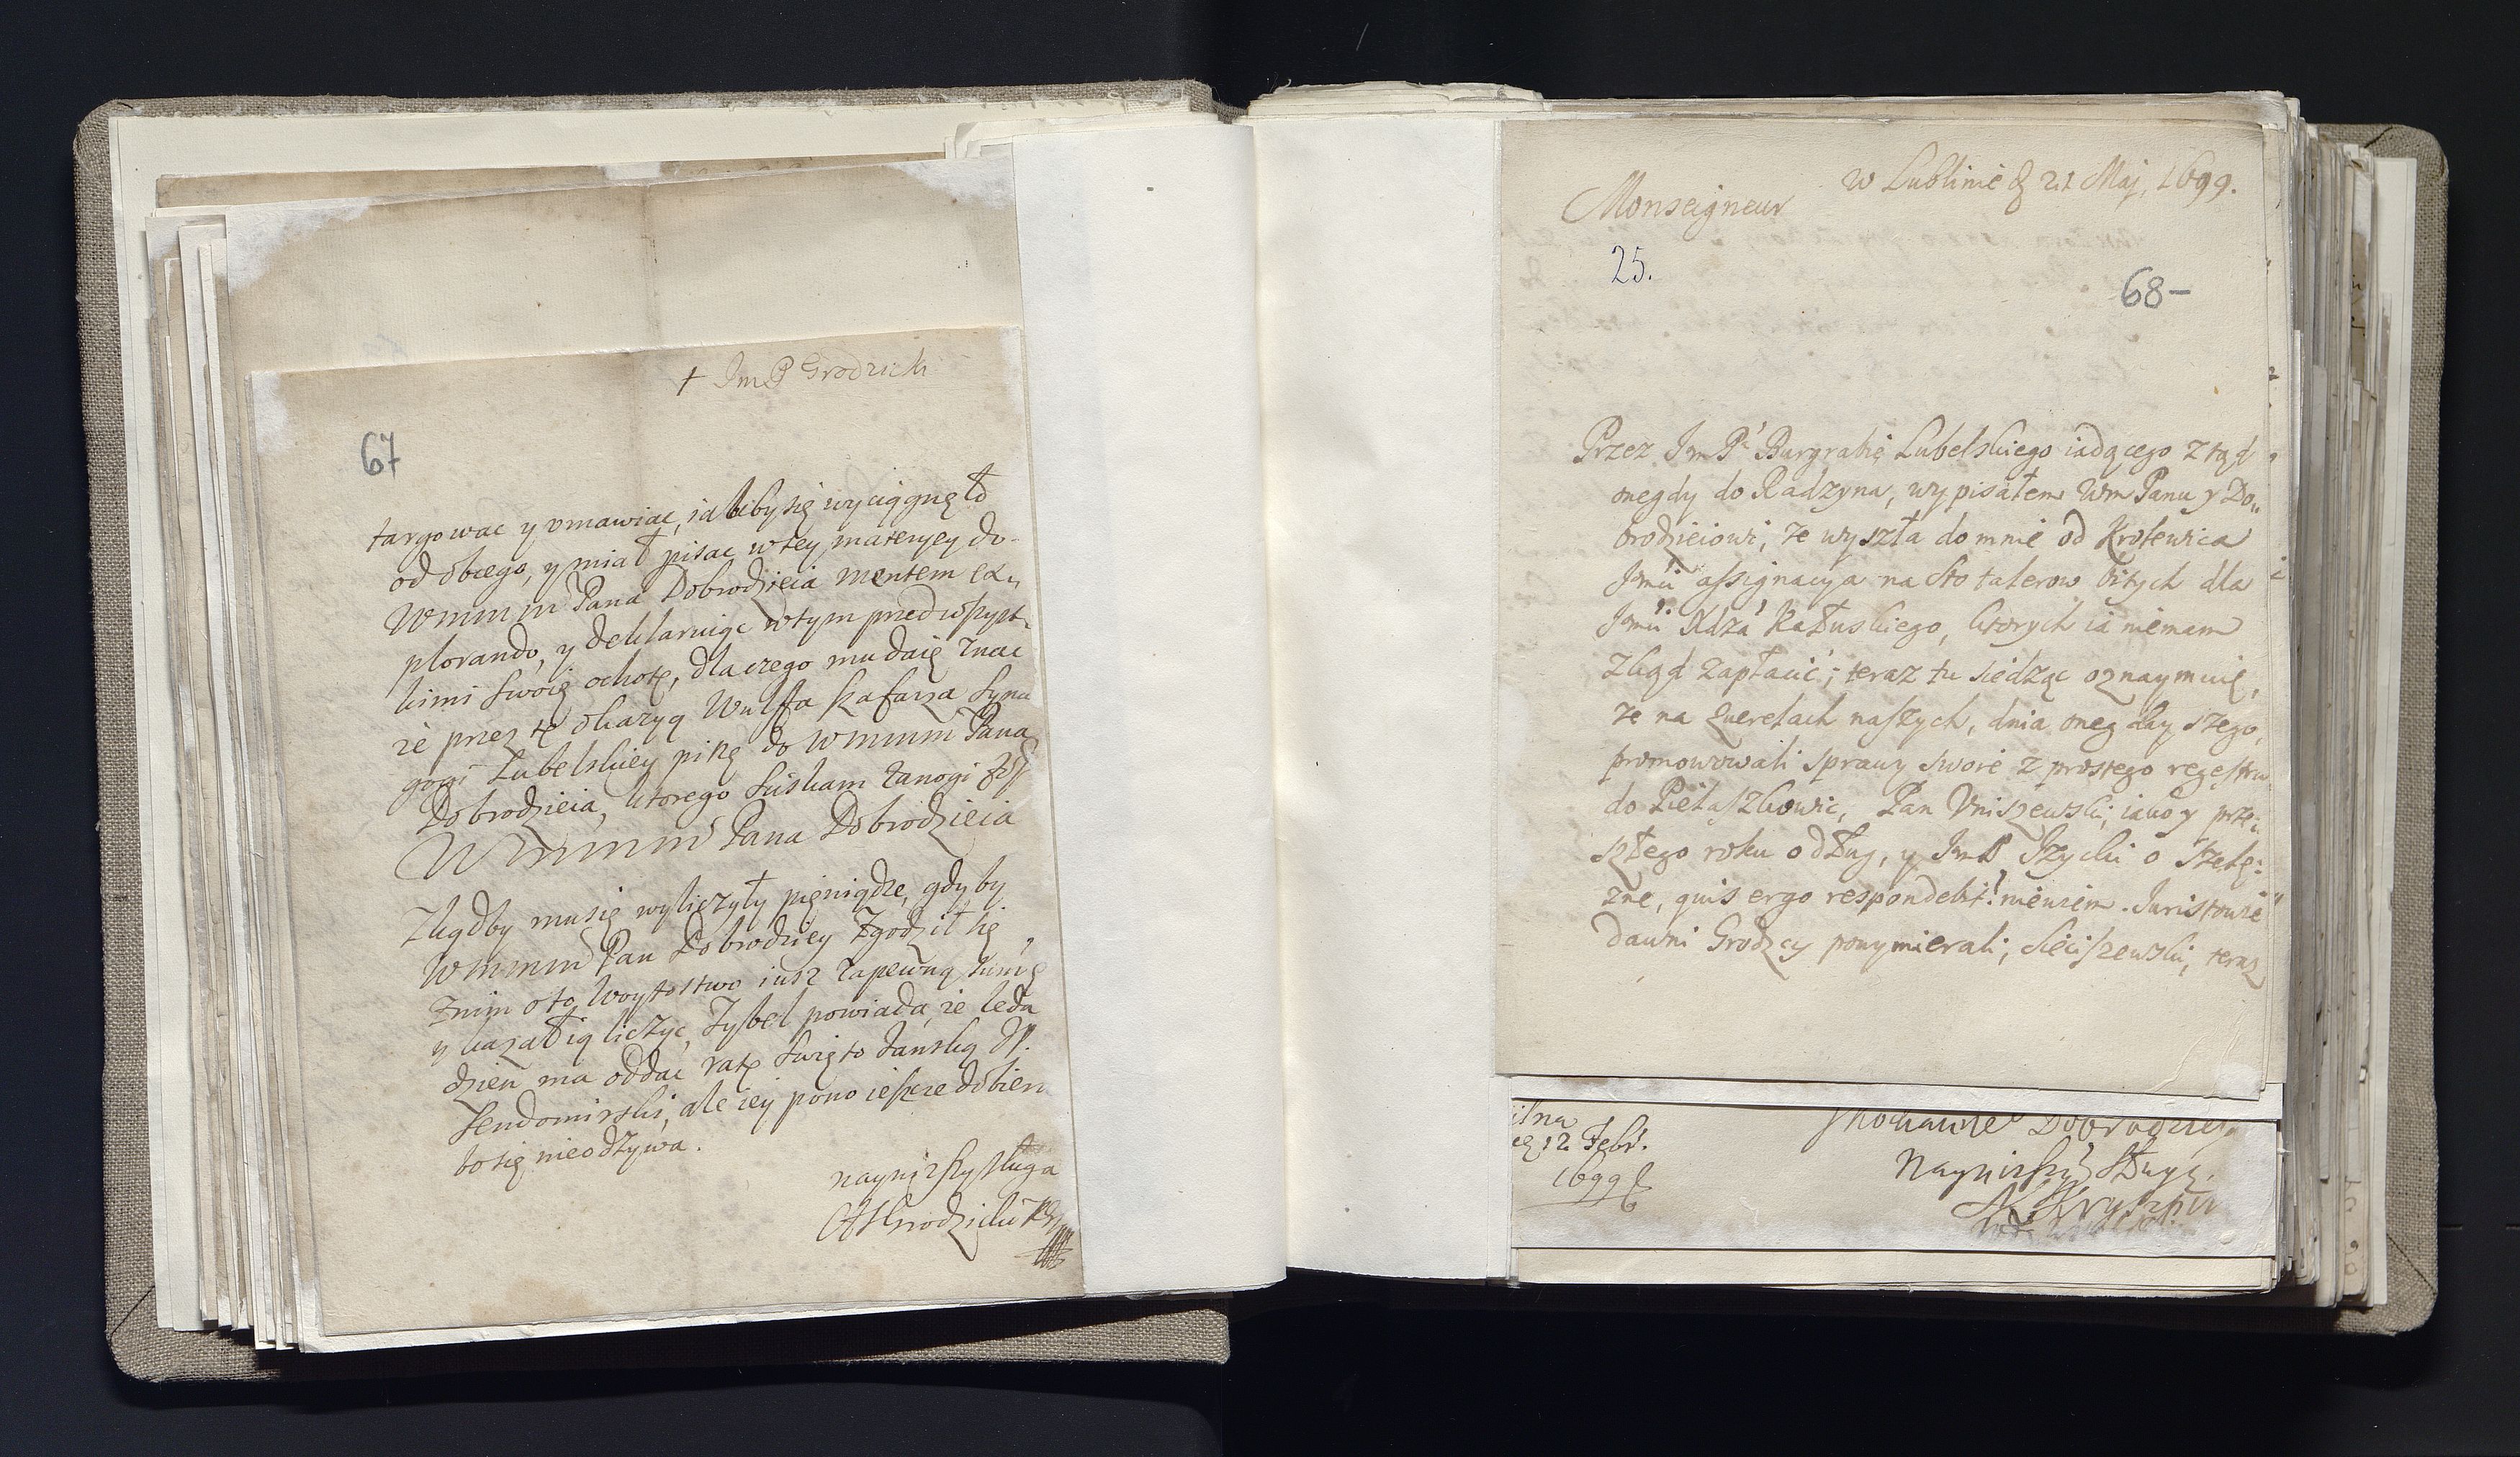 † Jm P Grodzicki
67
targowac y vmawiac, iakby się wyciągnęło
od obcego, y miał pisac w tey materyey do
Wmmm Pana Dobrodzieia mentem ex„
plorando, y deklaruiąc w tym przed wszyst„
kimi swoię ochotę, dlaczego mu daię znac
że przez tę okazyą Wulffa Kafarza Syna
gogi Lubelskiey piszę do Wmmm Pana
Dobrodzieia, ktorego sciskam za nogi
Wmmm Pana Dobrodzieia
Zkądby mu się wyliczyły pieniądze, gdyby
Wmmm Pan Dobrodziey zgodził się
znim o to Woytostwo iusz zapewną summę
y kazał ią liczyc, Zybel powiada, ze leda
dzien ma oddac ratę Swięto Janską JP.
Sendomirski, ale iey pono ieszcze dobien
bo się nieodzywa.
naynizszy sługa
Grodzicki
w Lublinie 21 Maj, 1699.
Monseigneur
25.
68-
Przez Jm Pa Burgrabię Lubelskiego iadącego ztąd
onegdy do Radzyna, wypisałem Wm Panu y Do„
brodzieiowi, że wyszła do mnie od Krolewica
Jmći assignacya na sto talerow bitych dla
Jmći Xdza Kałuskiego, ktorych ia niemam
zkąd zapłacić; teraz tu siedząc oznaymuię,
ze na querelach naszych, dnia onegdayszego,
promowowali sprawy swoie z prostego regestru
do Pietaszkowic, Pan Vniszewski, iako y prze„
szłego roku o dług, y Jm P Szycki o Szelę„
zne, quis ergo respondebit? niewiem. Juristowie
dawni Grodzcy powymierali; Sieciszewski, teraz
ilna
12 Febr.
1699
Dobrodzieia
Naynizszy Sługa
Kryszpin